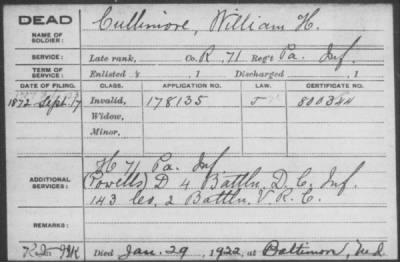 DEAD
NAME OF SOLDIER:
Cullimore, William H.
SERVICE:
Late rank, Co. R. 71 Reg't Pa. Inf.
TERM OF SERVICE:
Enlisted , 1 Discharged , 1
DATE OF FILING. CLASS. APPLICATION NO. LAW. CERTIFICATE NO.
1872 Sept. 17 Invalid, 178135 J 800344
Widow,
Minor,
ADDITIONAL SERVICES:
H 71 Pa. Inf
(Powells) D 4 Battln. D.C. Inf.
143 Co, 2 Battln. V.R.C.
REMARKS:
Died Jan. 29, 1922, at Baltimore, Md.